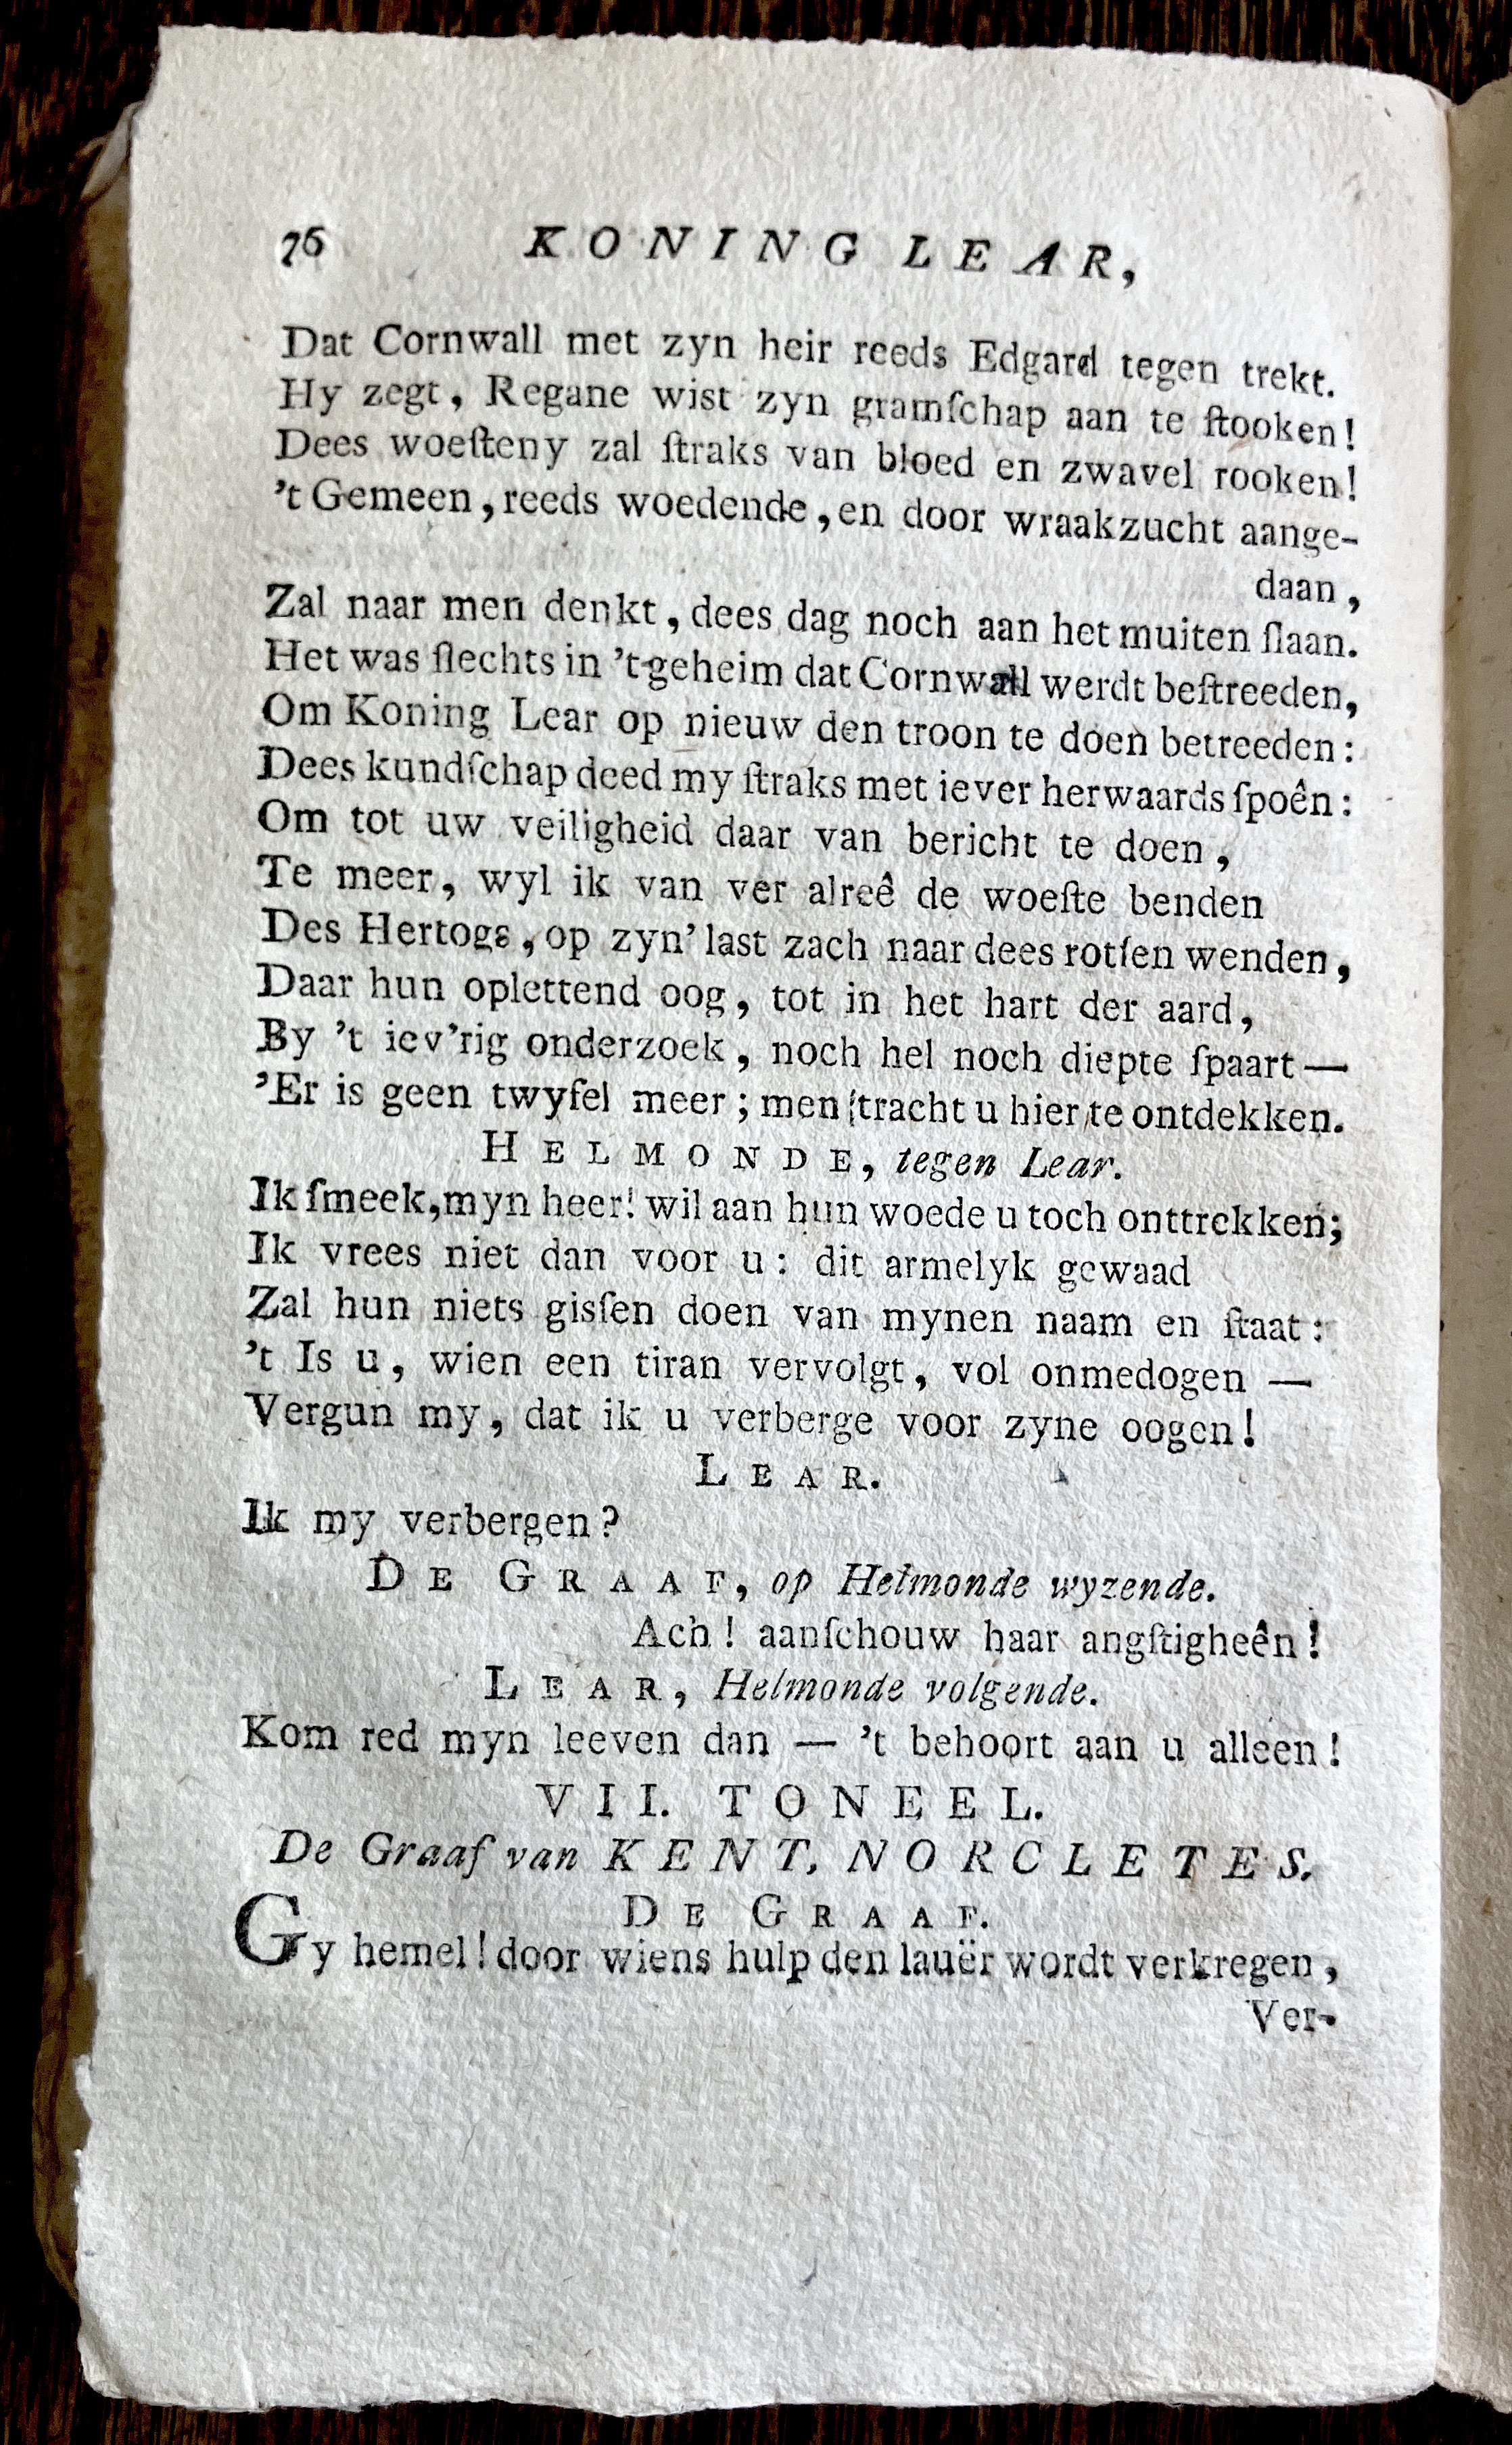 76 KONING LEAR,
Dat Cornwall met zyn heir reeds Edgard tegen trekt.
Hy zegt, Regane wist zyn gramſchap aan te ſtooken!
Dees woeſteny zal ſtraks van bloed en zwavel rooken!
't Gemeen, reeds woedende, en door wraakzucht aange-
daan,
Zal naar men denkt, dees dag noch aan het muiten ſlaan.
Het was ſlechts in 't geheim dat Cornwall werdt beſtreeden,
Om Koning Lear op nieuw den troon te doen betreeden:
Dees kundſchap deed my ſtraks met iever herwaards ſpoên:
Om tot uw veiligheid daar van bericht te doen,
Te meer, wyl ik van ver alreê de woeſte benden
Des Hertogs, op zyn' last zach naar dees rotſen wenden,
Daar hun oplettend oog, tot in het hart der aard,
By 't iev'rig onderzoek, noch hel noch diepte ſpaart —
'Er is geen twyfel meer; men ſtracht u hier te ontdekken.
HELMONDE, tegen Lear.
Ik ſmeek, myn heer! wil aan hun woede u toch onttrekken;
Ik vrees niet dan voor u: dit armelyk gewaad
Zal hun niets gisſen doen van mynen naam en ſtaat:
't Is u, wien een tiran vervolgt, vol onmedogen —
Vergun my, dat ik u verberge voor zyne oogen!
LEAR.
Ik my verbergen?
DE GRAAF, op Helmonde wyzende.
Ach! aanſchouw haar angſtigheên!
LEAR, Helmonde volgende.
Kom red myn leeven dan — 't behoort aan u alleen!
VII. TONEEL.
De Graaf van KENT, NORCLETES.
DE GRAAF.
Gy hemel! door wiens hulp den lauër wordt verkregen,
Ver-